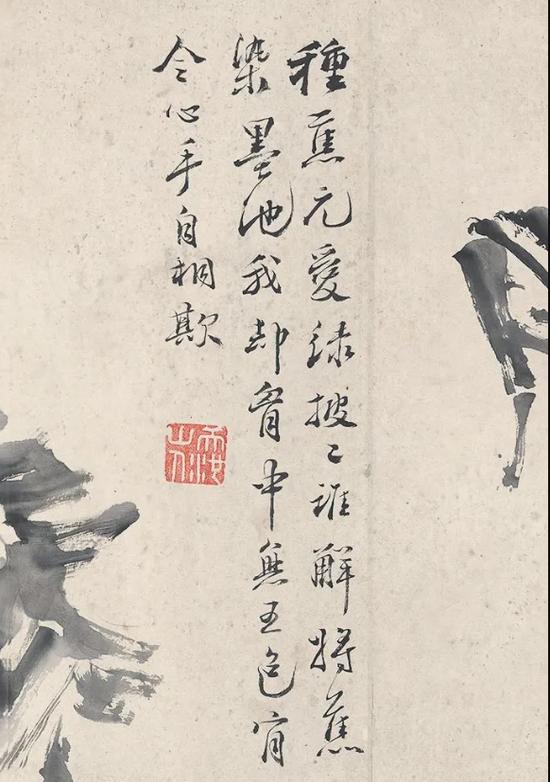 種蕉元愛綠披〻誰解將蕉
染墨池我却胷中無五色肯
令心手自相欺
天池山人